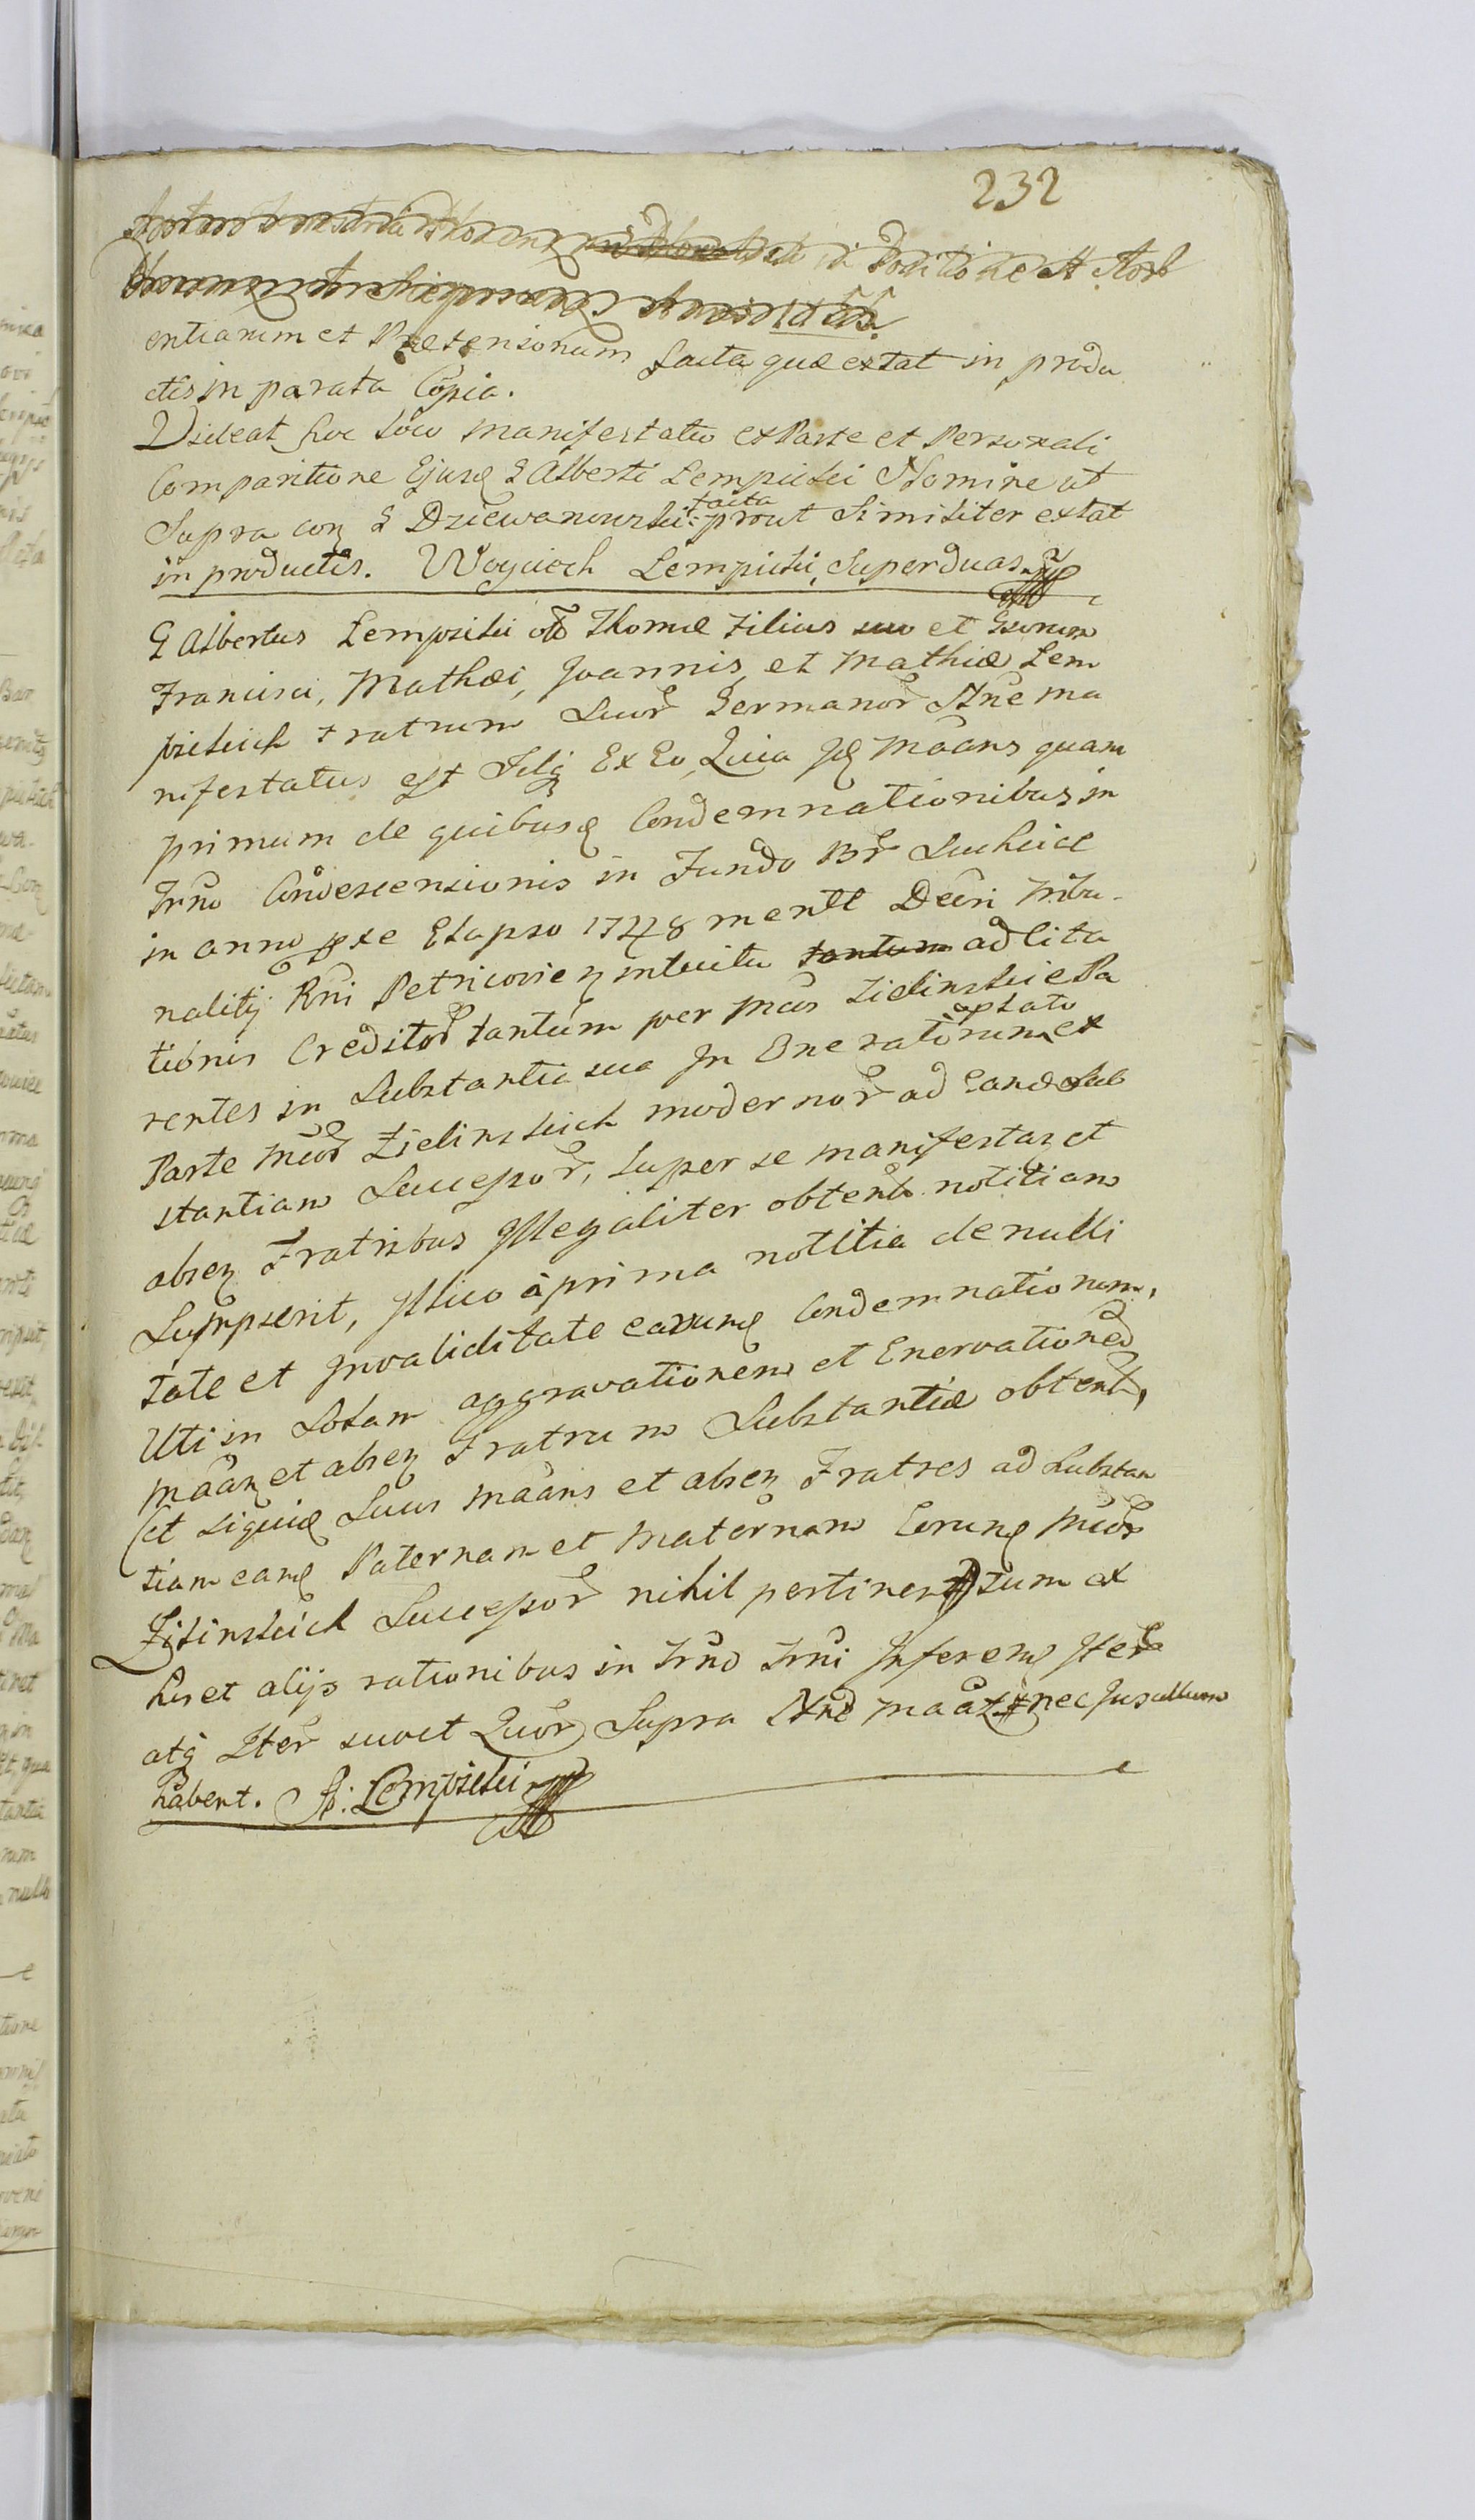 232
in Positione et Aseb
entiarum et Praetensionum facta quae extat in produ
ctis in parata Copia.
Videat hoc loco manifestatio ex Parte et Personali
Comparitione Ejusq G Alberti Lempicki Nomine ut
Supra con G Dziewanowski: facta prout Similiter extat
in productis. Woyciech Lempicki Super duas
G Albertus Lempicki olo Thomae Filius suo et Gsorum
Francisci, Mathaei, Joannis et Mathiae Lem
pickich Fratrum Suor Germanor Nne ma
nifestatus est Selq Ex Eo, Quia Jq Maans quam
primum de quibusq Condemnationibus in
Trno Condescensionis in Fundo Br Suchcice
in anno pxe Elapso 1748 mentt Decri Tribu
nalitij Rni Petricovien intuitu tantum ad Cita
tionis Creditor tantum per Mcos Zielinskie Pa
rentes in Substantia sua In Oneratorum optato ex
Parte Mcor Zielinskich modernor ad Eand Sub
stantiam Successor, super se manifestan et
absen Fratribus Illegaliter obtent notitiam
Sumpserit, Illico a prima notitia de nulli
tate et Invaliditate earunq Condemnationum,
Uti in Solam aggravationem et Enervationed
maan et absen Fratrum Substantiae obtent,
(et siquid Suus maans et absen Fratres ad Substan
tiam eamq Paternam et Maternam Eorunq Mcor
Zilinskich Successor nihil pertinent) tum ex
his et alijs rationibus in Trno Trni Inferenq Iter
atq Iter suo et Quor Supra Nne maat nec Jus ullum
habent. A: Lempicki